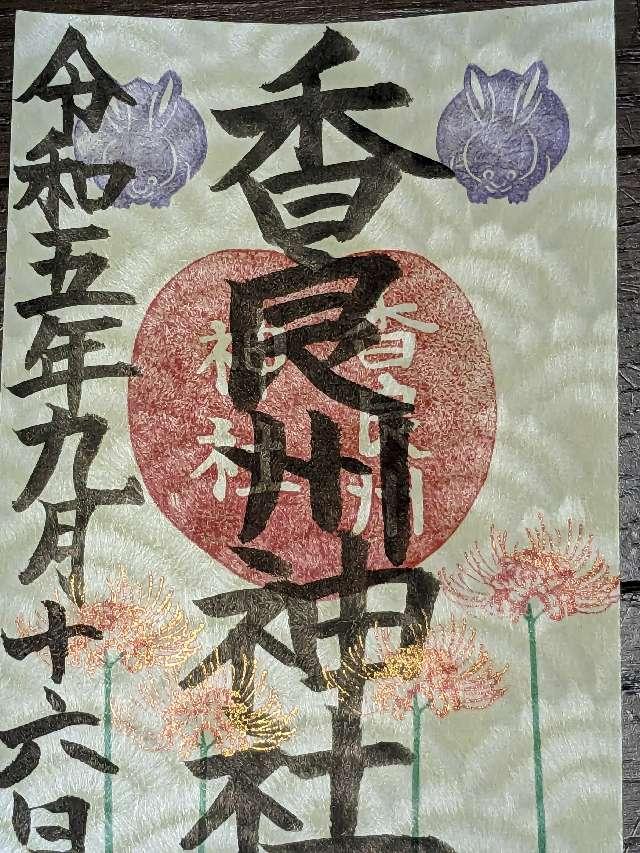 香良洲神社
香良洲
神社
令和五年九月十六日